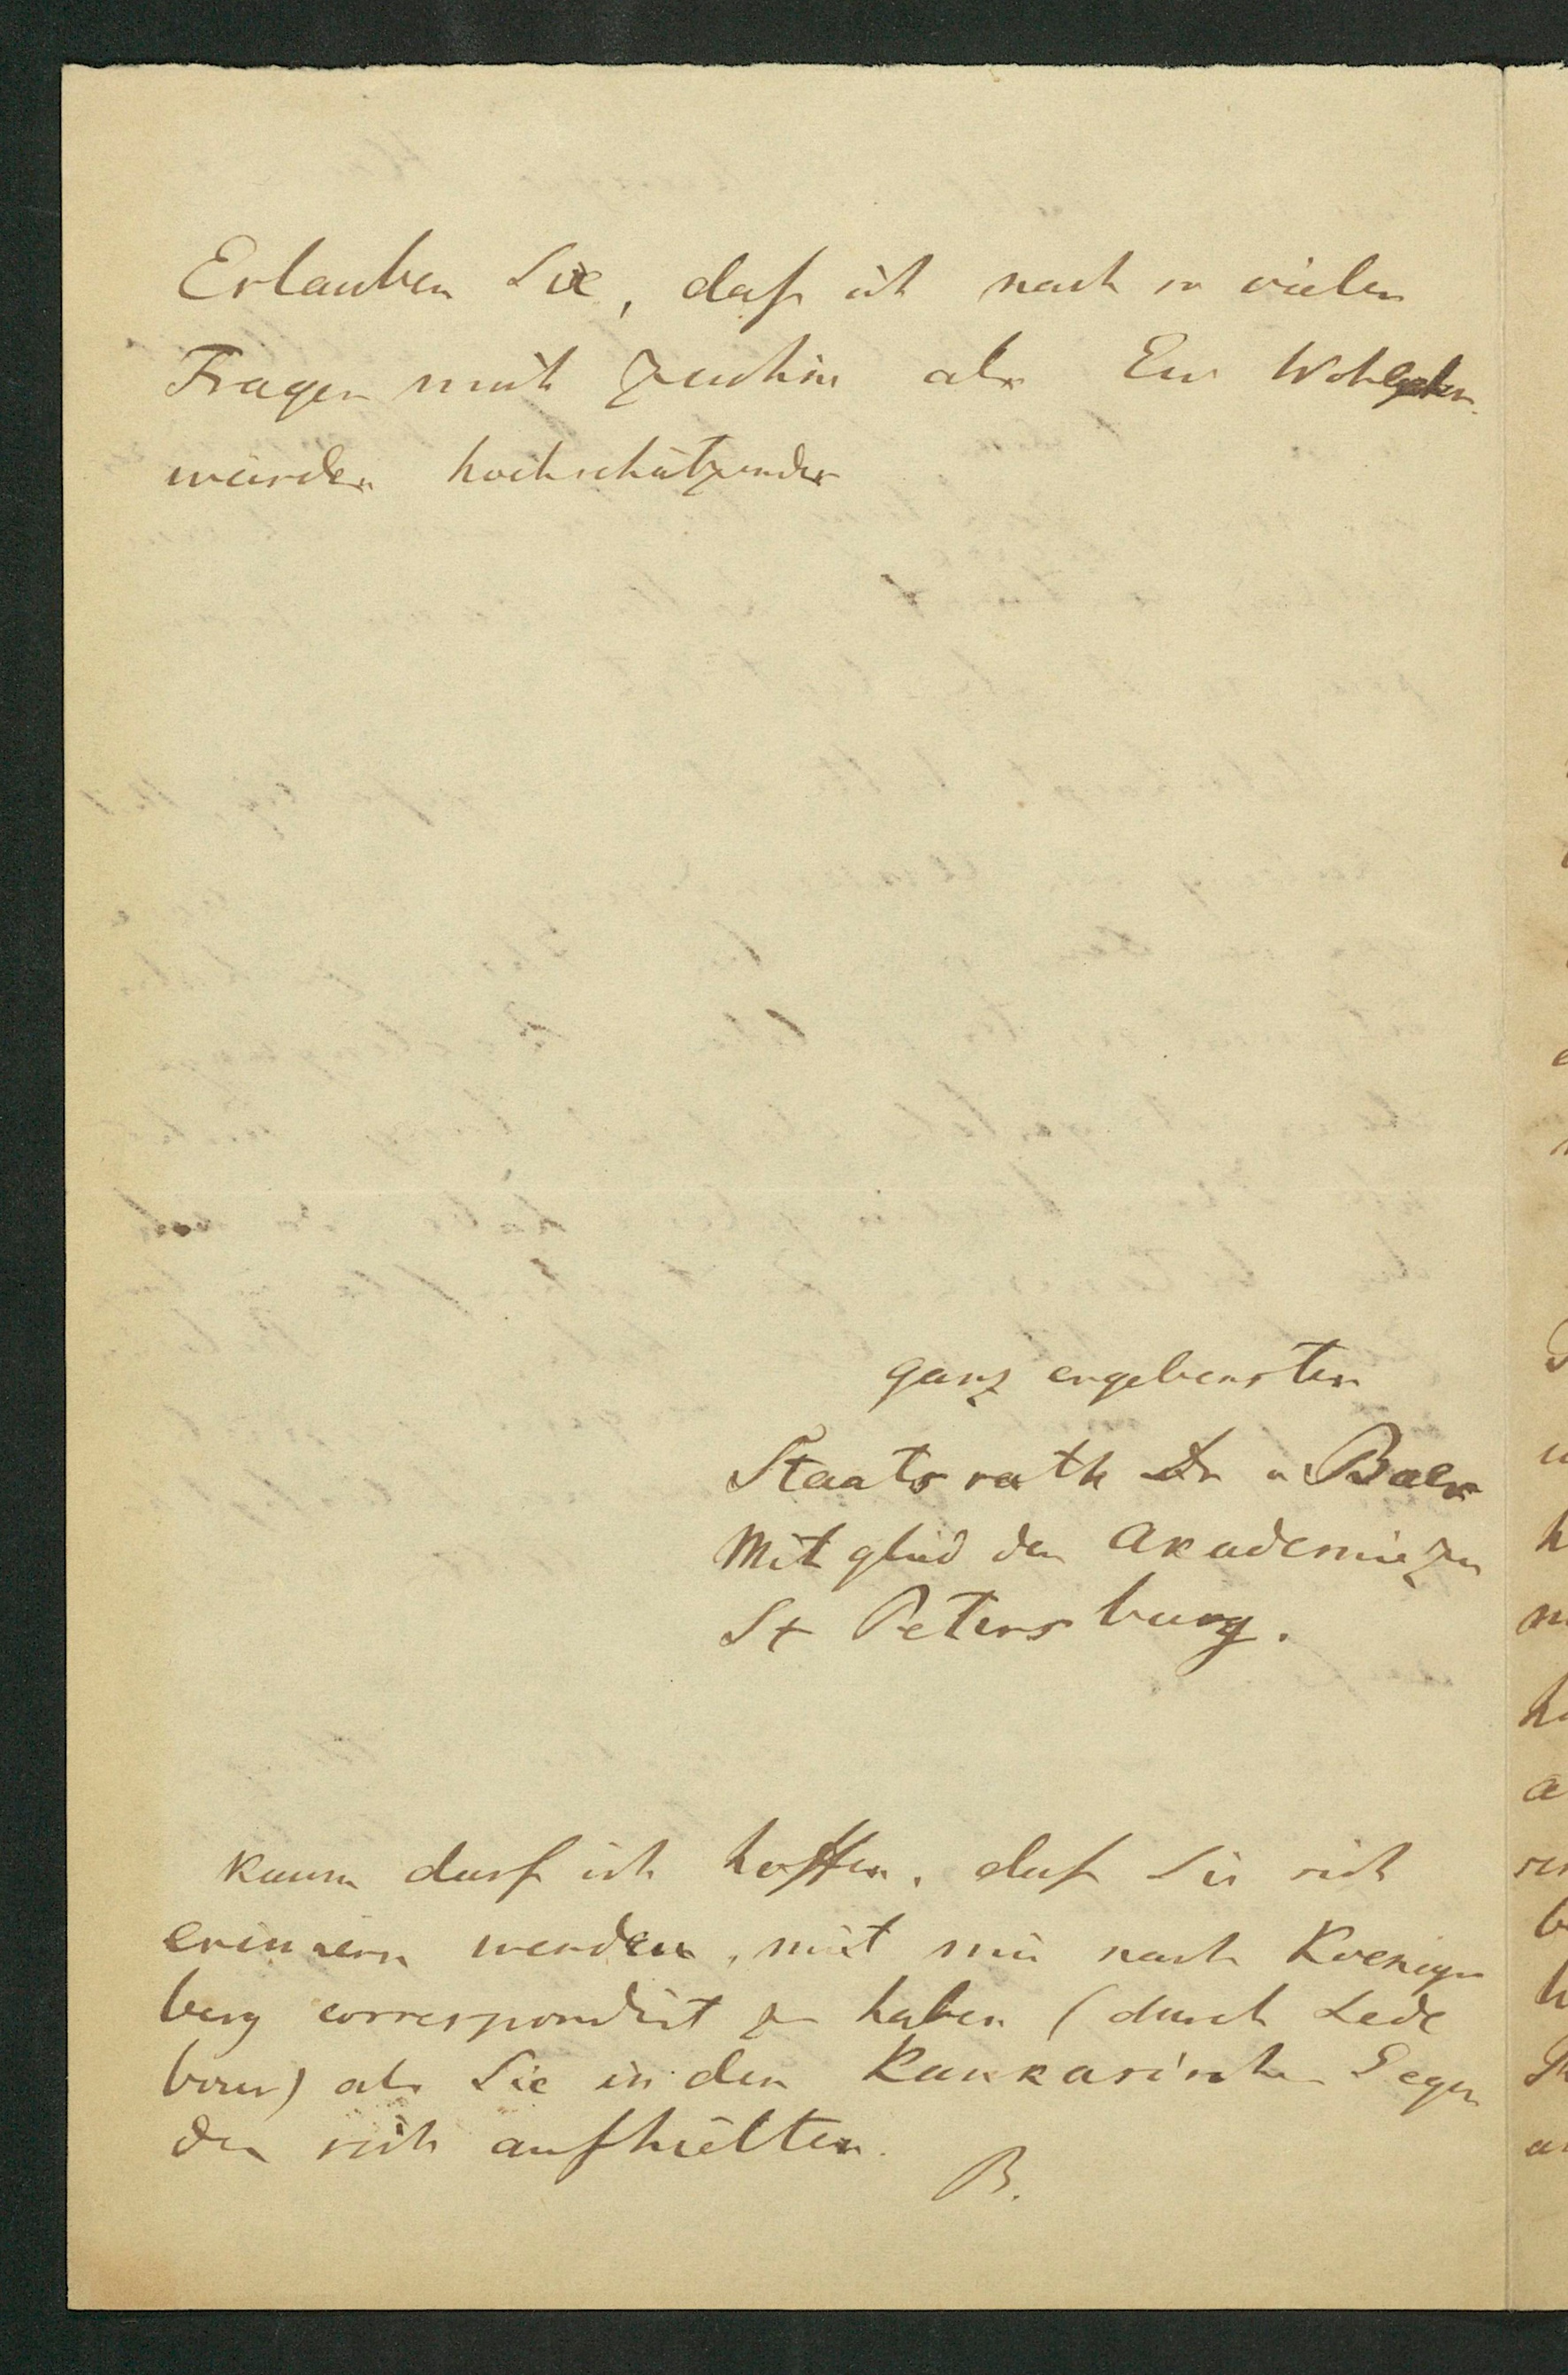 Erlauben Sie, daß ich nach so vielen
Fragen mich zeichne als Ew Wohlgebor.
würden hochschätzender
ganz ergebenster
Staatsrath Dr v Baer
Mitglied der Akademie zu
St Petersburg.
Kaum darf ich hoffen, daß Sie sich
erinnern werden, mit mir nach Koenigs
berg correspondirt zu haben (durch Lede
bour) als Sie in den Kaukasischen Gegen
den sich aufhielten.
B.